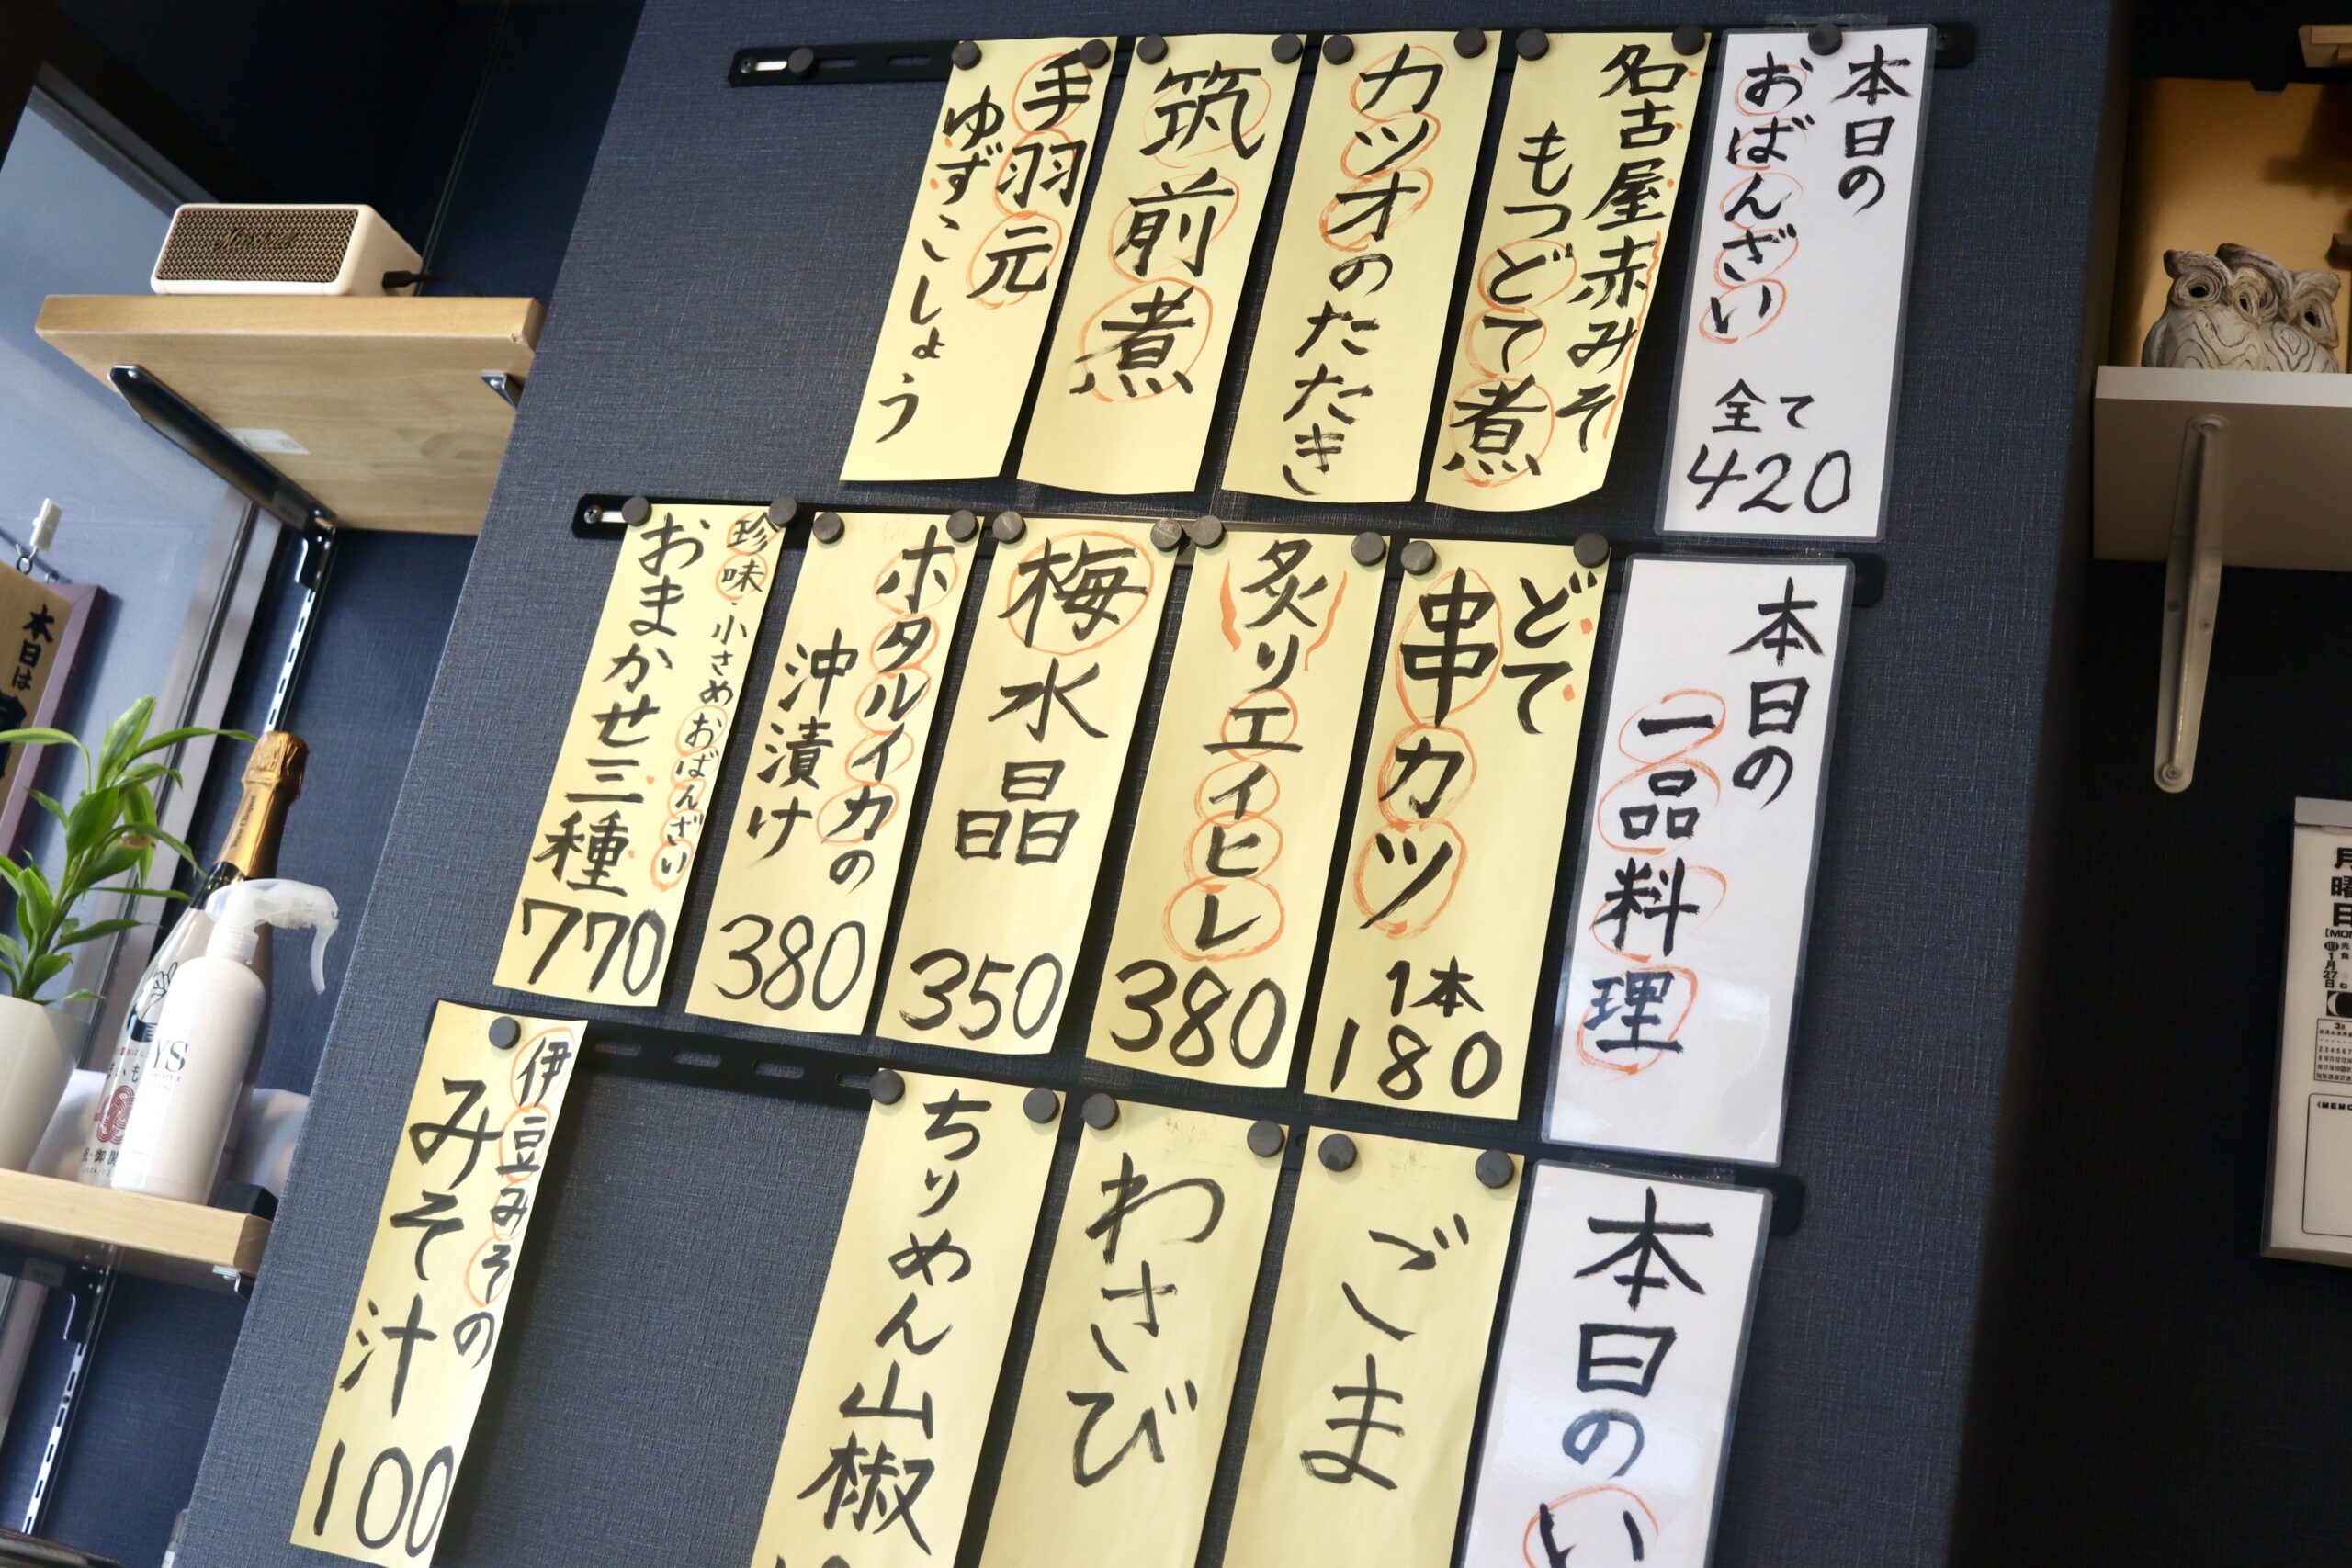 本日の
おばんざい
全て
420
名古屋赤みそ
もつどて煮
カツオのたたき
筑前煮
手羽元
ゆずこしょう
本日の
一品料理
どて
串カツ
1本
180
炙りエイヒレ
380
梅水晶
350
ホタルイカの
沖漬け
380
珍味・小さめおばんざい
おまかせ三種
770
本日のい
ごま
わさび
ちりめん山椒
伊豆みその
みそ汁
100
Marshall
本日は
YS
月曜日
[MON
1月27日